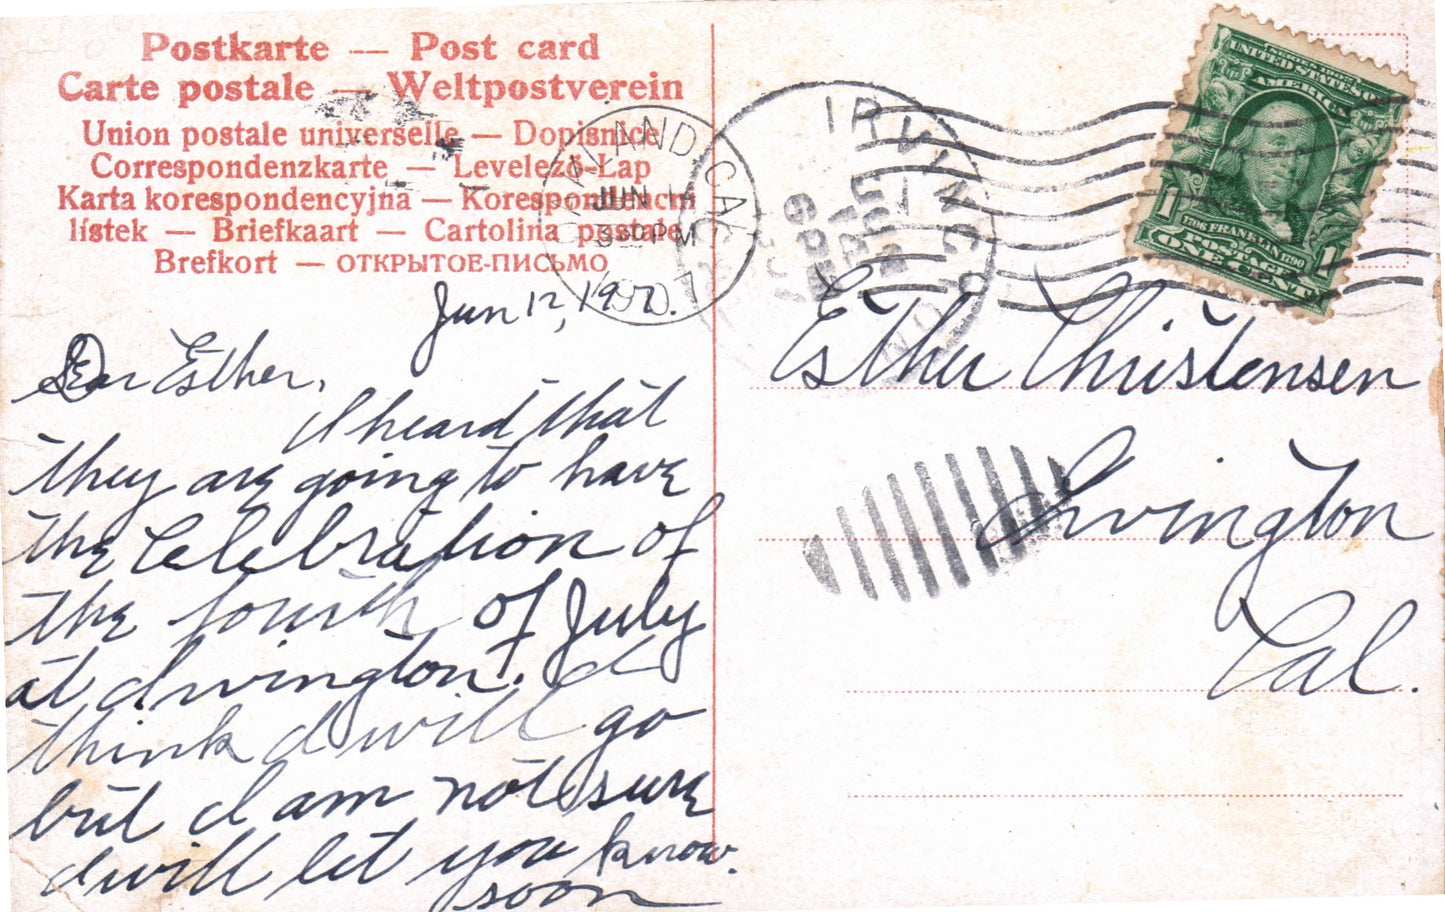 Postkarte — Post card
Carte postale — Weltpostverein
Union postale universelle — Dopisnice
Correspondenzkarte — Levelező-Lap
Karta korespondencyjna — Korespondenční
lístek — Briefkaart — Cartolina postale
Brefkort — ОТКРЫТОЕ-ПИСЬМО
Jun 12, 1907.
Dear Esther,
I heard that
they are going to have
the Celebration of
the fourth of July
at Irvington. I
think I will go
but I am not sure
I will let you know.
soon
CAL.
JUN
PM
IRVINGTON
JUN
SERIES 1902
UNITED STATES OF
AMERICA
1706 FRANKLIN 1790
1 POSTAGE 1
ONE CENT
Esther Christensen
Irvington
Cal.